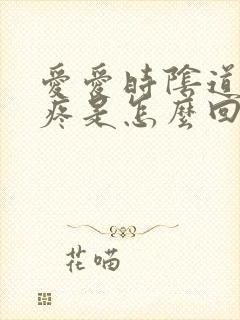 愛愛時陰道
疼是怎麼回
花喵